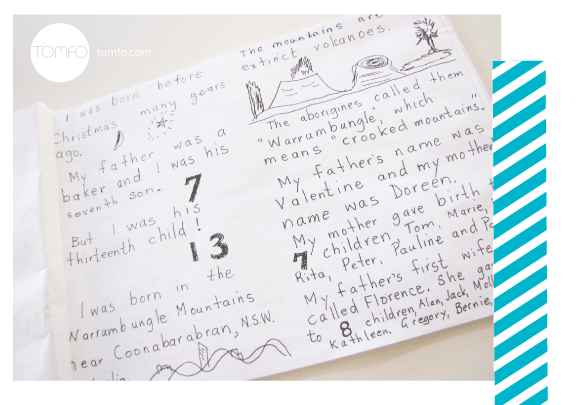 TOMFO tomfo.com
I was born before
Christmas many years
ago.
My father was a
baker and I was his
seventh son. 7
But I was his
thirteenth child!
13
I was born in the
Warrumbungle Mountains
near Coonabarabran, N.S.W.
The mountains are
extinct volkanoes.
The aborigines called them
"Warrumbungle", which
means "crooked mountains".
My father's name was
Valentine and my mother
name was Doreen.
My mother gave birth
7 children, Tom, Marie,
Rita, Peter, Pauline and
My father's first wife
called Florence. She
to 8 children, Alan, Jack,
Kathleen, Gregory, Bernie,